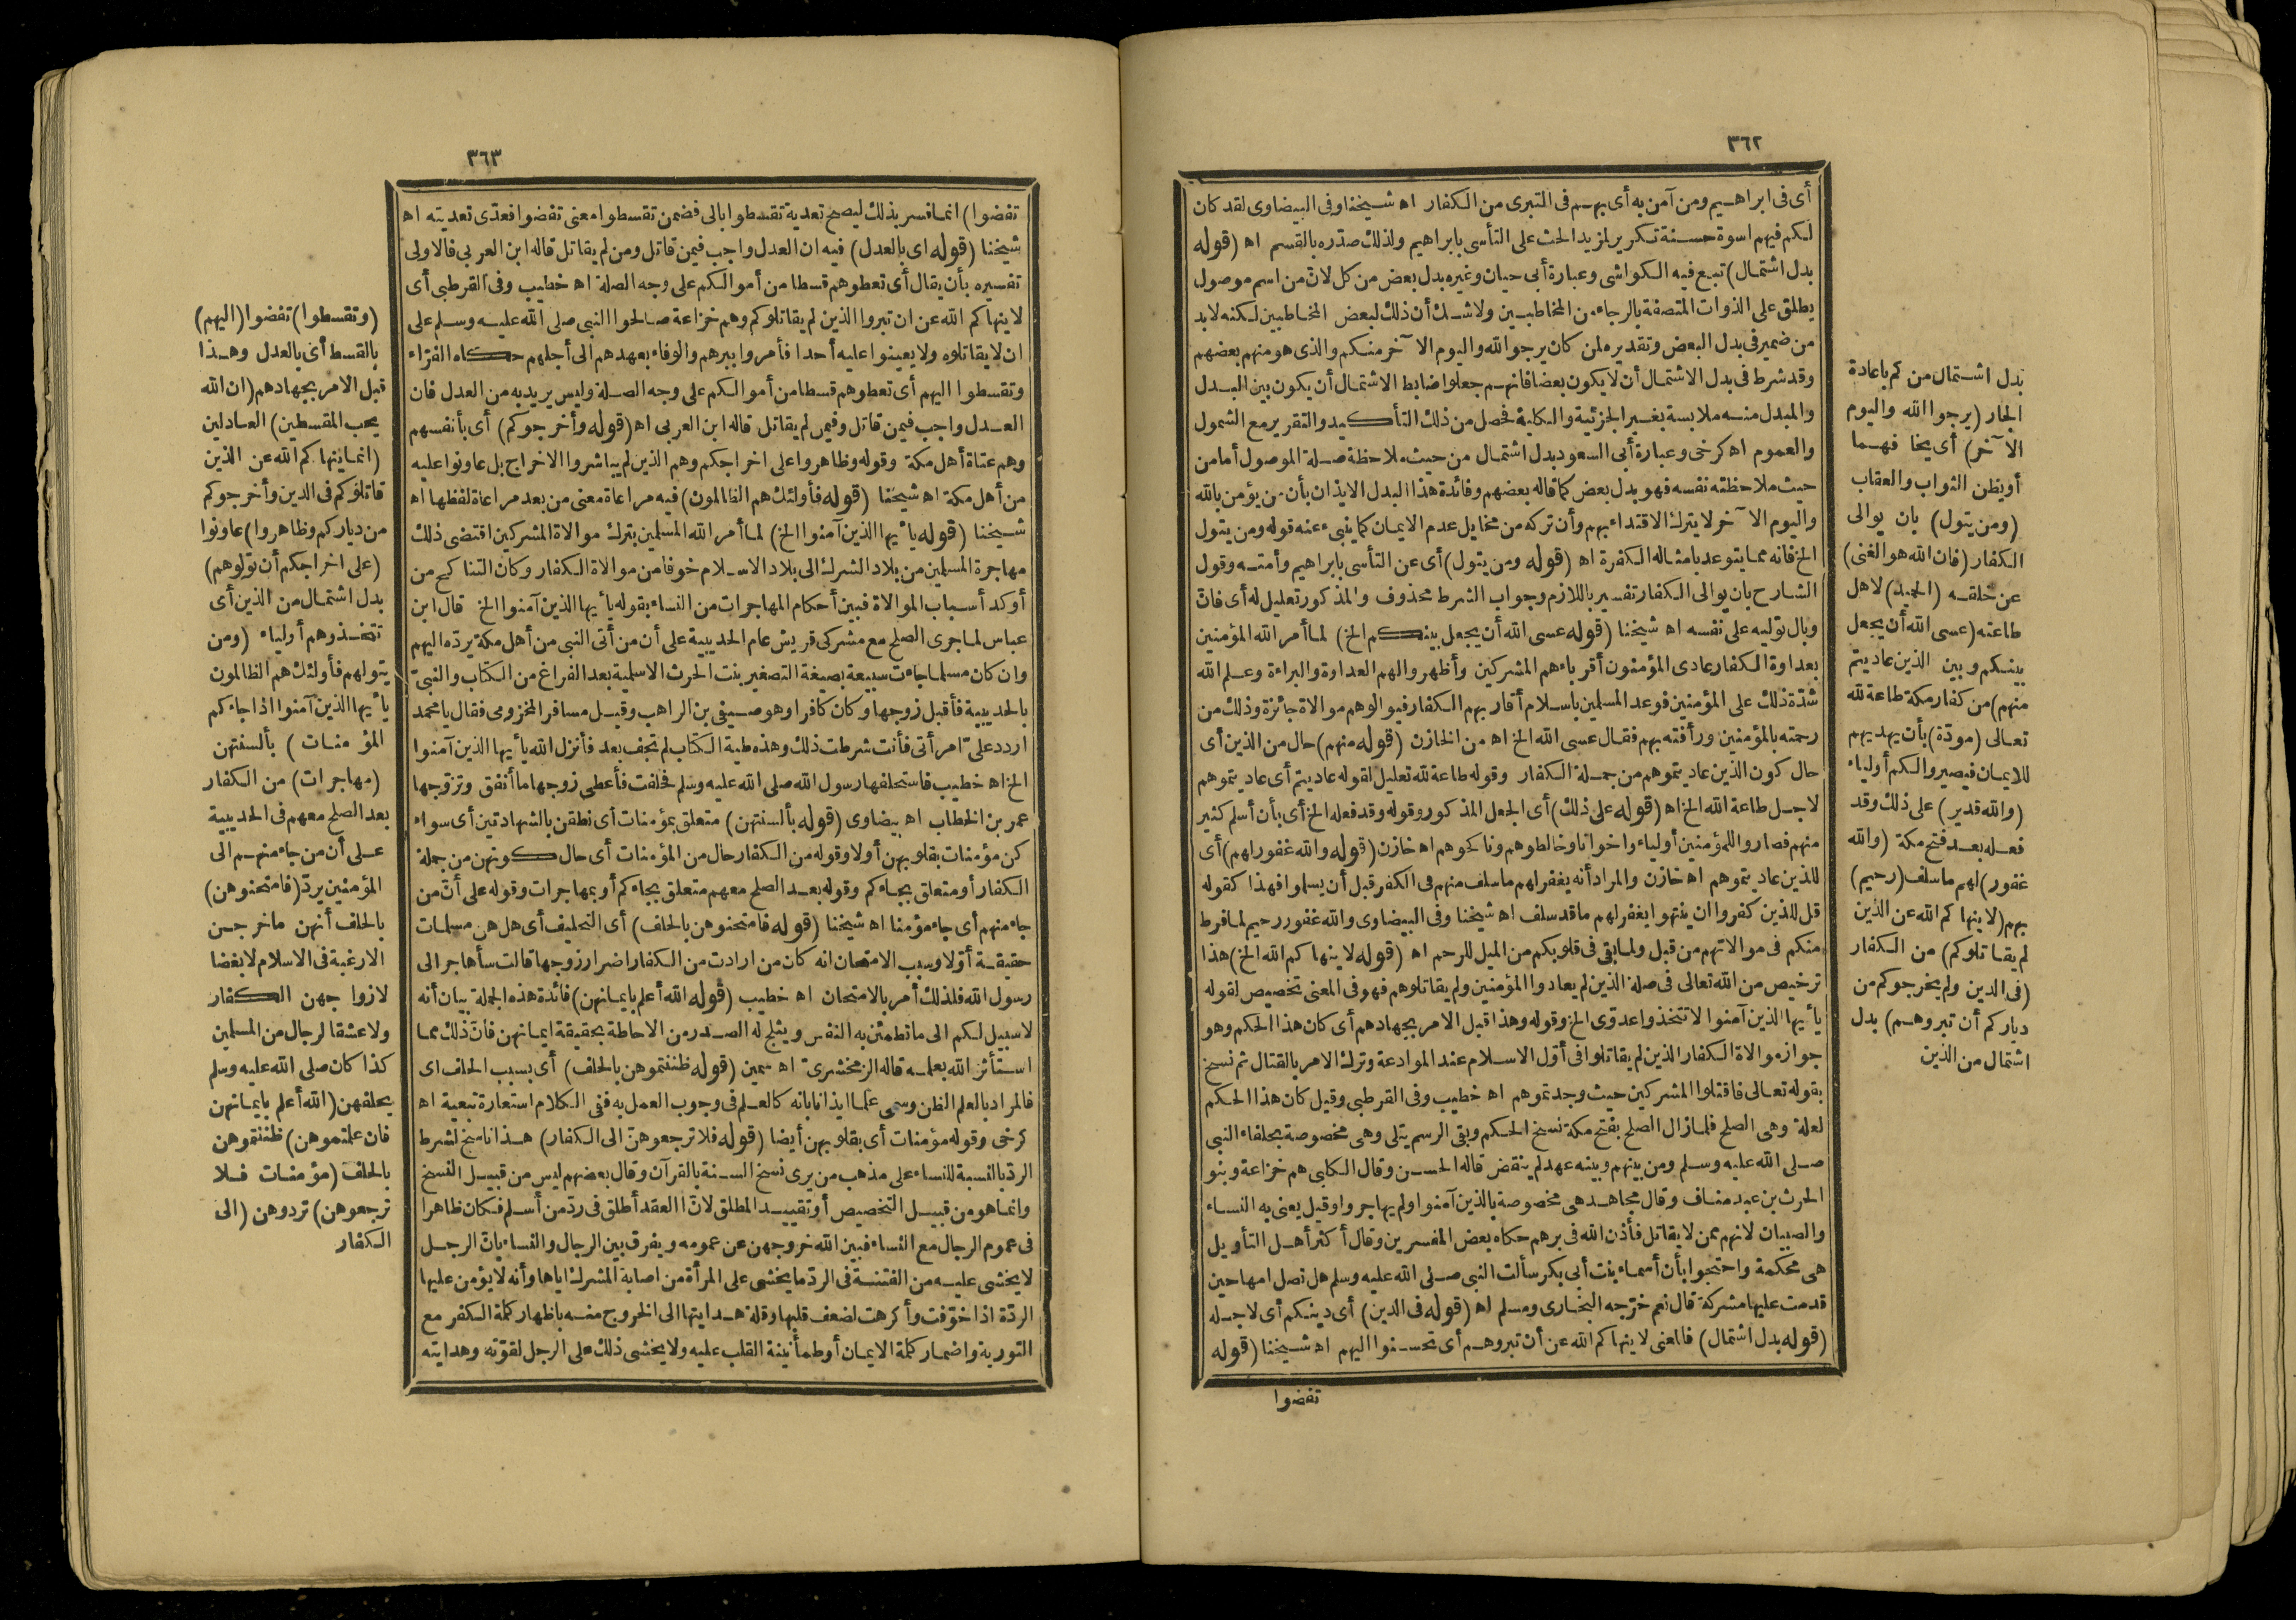 ٣٦٢
أى فى ابراهيم ومن آمن به أى بهم فى التبرى من الكفار اه شيخنا وفى البيضاوى لقد كان
لكم فيهم اسوة حسنة تكرير لمزيد الحث على التأسى بابراهيم ولذلك صدّره بالقسم اه (قوله
بدل اشتمال) تبع فيه الكواشى وعبارة أبى حيان وغيره بدل بعض من كل لانّ من اسم موصول
يطلق على الذوات المتصفة بالرجاء من المخاطبين ولا شك أن ذلك لبعض المخاطبين لكنه لابد
من ضمير فى بدل البعض وتقديره لمن كان يرجو الله واليوم الآخر منكم والذى هو منهم بعضهم
وقد شرط فى بدل الاشتمال أن لا يكون بعضا فانهم جعلوا ضابط الاشتمال أن يكون بين البدل
والمبدل منه ملابسة بغير الجزئية والكلية فحصل من ذلك التأكيد والتقرير مع الشمول
والعموم اه كرخى وعبارة أبى السعود بدل اشتمال من حيث ملاحظة صلة الموصول أما من
حيث ملاحظته نفسه فهو بدل بعض كما قاله بعضهم وفائدة هذا البدل الايذان بأن من يؤمن بالله
واليوم الآخر لا يترك الاقتداء بهم وأن تركه من مخايل عدم الايمان كما ينبىء عنه قوله ومن يتول
الخ فانه مما يتوعد بامثاله الكفرة اه (قوله ومن يتول) أى عن التأسى بابراهيم وأمته وقول
الشارح بان يوالى الكفار تفسير باللازم وجواب الشرط محذوف والمذكور تعليل له أى فانّ
وبال توليه على نفسه اه شيخنا (قوله عسى الله أن يجعل بينكم الخ) لما أمر الله المؤمنين
بعداوة الكفار عادى المؤمنون أقرباءهم المشركين وأظهروا لهم العداوة والبراءة وعلم الله
شدّة ذلك على المؤمنين فوعد المسلمين باسلام أقاربهم الكفار فيوالوهم موالاة جائزة وذلك من
رحمته بالمؤمنين ورأفته بهم فقال عسى الله الخ اه من الخازن (قوله منهم) حال من الذين أى
حال كون الذين عاديتموهم من جملة الكفار وقوله طاعة لله تعليل لقوله عاديتم أى عاديتموهم
لاجل طاعة الله الخ اه (قوله على ذلك) أى الجعل المذكور وقوله وقد فعله الخ أى بأن أسلم كثير
منهم فصاروا للمؤمنين أولياء واخوانا وخالطوهم وناكحوهم اه خازن (قوله والله غفور لهم) أى
للذين عاديتموهم اه خازن والمراد أنه يغفر لهم ما سلف منهم فى الكفر قبل أن يسلموا فهذا كقوله
قل للذين كفروا ان ينتهوا يغفر لهم ما قد سلف اه شيخنا وفى البيضاوى والله غفور رحيم لما فرط
منكم فى موالاتهم من قبل ولما بقى فى قلوبكم من الميل للرحم اه (قوله لا ينهاكم الله الخ) هذا
ترخيص من الله تعالى فى صلة الذين لم يعادوا المؤمنين ولم يقاتلوهم فهو فى المعنى تخصيص لقوله
يأيها الذين آمنوا لا تتخذوا عدوّى الخ وقوله وهذا قبل الامر بجهادهم أى كان هذا الحكم وهو
جواز موالاة الكفار الذين لم يقاتلوا فى أوّل الاسلام عند الموادعة وترك الامر بالقتال ثم نسخ
بقوله تعالى فاقتلوا المشركين حيث وجدتموهم اه خطيب وفى القرطبى وقيل كان هذا الحكم
لعلة وهى الصلح فلما زال الصلح بفتح مكة نسخ الحكم وبقى الرسم يتلى وهى مخصوصة بحلفاء النبى
صلى الله عليه وسلم ومن بينهم وبينه عهد لم ينقض قاله الحسن وقال الكلبى هم خزاعة وبنو
الحرث بن عبد مناف وقال مجاهد هى مخصوصة بالذين آمنوا ولم يهاجروا وقيل يعنى به النساء
والصبيان لانهم ممن لا يقاتل فأذن الله فى برهم حكاه بعض المفسرين وقال أكثر أهل التأويل
هى محكمة واحتجوا بأن أسماء بنت أبى بكر سألت النبى صلى الله عليه وسلم هل تصل امها حين
قدمت عليها مشركة قال نعم خرّجه البخارى ومسلم اه (قوله فى الدين) أى دينكم أى لاجله
(قوله بدل اشتمال) فالمعنى لا ينهاكم الله عن أن تبروهم أى تحسنوا اليهم اه شيخنا (قوله
تفضوا
بدل اشتمال من كم باعادة
الجار (يرجوا الله واليوم
الآخر) أى يخافهما
أو يظن الثواب والعقاب
(ومن يتول) بان يوالى
الكفار (فان الله هو الغنى)
عن خلقه (الحميد) لاهل
طاعته (عسى الله أن يجعل
بينكم وبين الذين عاديتم
منهم) من كفار مكة طاعة لله
تعالى (مودّة) بأن يهديهم
للايمان فيصيروا لكم أولياء
(والله قدير) على ذلك وقد
فعله بعد فتح مكة (والله
غفور) لهم ما سلف (رحيم)
بهم (لا ينهاكم الله عن الذين
لم يقاتلوكم) من الكفار
(فى الدين ولم يخرجوكم من
دياركم أن تبروهم) بدل
اشتمال من الذين
٣٦٣
تفضوا) انما فسر بذلك ليصح تعدية تقسطوا بالى فضمن تقسطوا معنى تفضوا فعدّى تعديته اه
شيخنا (قوله اى بالعدل) فيه ان العدل واجب فيمن قاتل ومن لم يقاتل قاله ابن العربى فالاولى
تفسيره بأن يقال أى تعطوهم قسطا من أموالكم على وجه الصلة اه خطيب وفى القرطبى أى
لا ينهاكم الله عن ان تبروا الذين لم يقاتلوكم وهم خزاعة صالحوا النبى صلى الله عليه وسلم على
ان لا يقاتلوه ولا يعينوا عليه أحدا فأمروا ببرهم والوفاء بعهدهم الى أجلهم حكاه الفرّاء
وتقسطوا اليهم أى تعطوهم قسطا من أموالكم على وجه الصلة وليس يريد به من العدل فان
العدل واجب فيمن قاتل وفيمن لم يقاتل قاله ابن العربى اه (قوله وأخرجوكم) أى بأنفسهم
وهم عتاة أهل مكة وقوله وظاهروا على اخراجكم وهم الذين لم يباشروا الاخراج بل عاونوا عليه
من أهل مكة اه شيخنا (قوله فأولئك هم الظالمون) فيه مراعاة معنى من بعد مراعاة لفظها اه
شيخنا (قوله يأيها الذين آمنوا الخ) لما أمر الله المسلمين بترك موالاة المشركين اقتضى ذلك
مهاجرة المسلمين من بلاد الشرك الى بلاد الاسلام خوفا من موالاة الكفار وكان التناكح من
أوكد أسباب الموالاة فبين أحكام المهاجرات من النساء بقوله يأيها الذين آمنوا الخ قال ابن
عباس لما جرى الصلح مع مشركى قريش عام الحديبية على أن من أتى النبى من أهل مكة يردّه اليهم
وان كان مسلما جاءت سبيعة بصيغة التصغير بنت الحرث الاسلمية بعد الفراغ من الكتاب والنبىّ
بالحديبية فأقبل زوجها وكان كافرا وهو صيفى بن الراهب وقيل مسافر المخزومى فقال يا محمد
اردد علىّ امرأتى فأنت شرطت ذلك وهذه طية الكتاب لم تجف بعد فأنزل الله يأيها الذين آمنوا
الخ اه خطيب فاستحلفها رسول الله صلى الله عليه وسلم فحلفت فأعطى زوجها ما أنفق وتزوّجها
عمر بن الخطاب اه بيضاوى (قوله بألسنتهن) متعلق بمؤمنات أى نطقن بالشهادتين أى سواء
كن مؤمنات بقلوبهن أولا وقوله من الكفار حال من المؤمنات أى حال كونهن من جملة
الكفار أو متعلق بجاءكم وقوله بعد الصلح معهم متعلق بجاءكم أو بمهاجرات وقوله على أنّ من
جاء منهم أى جاء مؤمنا اه شيخنا (قوله فامتحنوهن بالحلف) أى التحليف أى هل هن مسلمات
حقيقة أوّلا وسبب الامتحان انه كان من ارادت من الكفار اضرار زوجها قالت سأهاجر الى
رسول الله فلذلك أمر بالامتحان اه خطيب (قوله الله أعلم بايمانهن) فائدة هذه الجملة بيان أنه
لاسبيل لكم الى ما تطمئن به النفس ويثلج له الصدر من الاحاطة بحقيقة ايمانهن فانّ ذلك مما
استأثر الله بعلمه قاله الزمخشرىّ اه سمين (قوله ظننتموهن بالحلف) أى بسبب الحلف اى
فالمراد بالعلم الظن وسمى علما ايذانا بانه كالعلم فى وجوب العمل به ففى الكلام استعارة تبعية اه
كرخى وقوله مؤمنات أى بقلوبهن أيضا (قوله فلا ترجعوهنّ الى الكفار) هذا ناسخ لشرط
الردّ بالنسبة للنساء على مذهب من يرى نسخ السنة بالقرآن وقال بعضهم ليس من قبيل النسخ
وانما هو من قبيل التخصيص أو تقييد المطلق لانّ العقد أطلق فى ردّ من أسلم فكان ظاهرا
فى عموم الرجال مع النساء فبين الله خروجهن عن عمومه ويفرق بين الرجال والنساء بانّ الرجل
لا يخشى عليه من الفتنة فى الردّ ما يخشى على المرأة من اصابة المشرك اياها وأنه لا يؤمن عليها
الردّة اذا خوّفت وأكرهت لضعف قلبها وقلة هدايتها الى الخروج منه باظهار كلمة الكفر مع
التورية واضمار كلمة الايمان أو طمأنينة القلب عليه ولا يخشى ذلك على الرجل لقوّته وهدايته
(وتقسطوا) تفضوا (اليهم)
بالقسط أى بالعدل وهذا
قبل الامر بجهادهم (ان الله
يحب المقسطين) العادلين
(انما ينهاكم الله عن الذين
قاتلوكم فى الدين وأخرجوكم
من دياركم وظاهروا) عاونوا
(على اخراجكم أن تولوهم)
بدل اشتمال من الذين أى
تتخذوهم أولياء (ومن
يتولهم فأولئك هم الظالمون
يأيها الذين آمنوا اذا جاءكم
المؤمنات) بألسنتهن
(مهاجرات) من الكفار
بعد الصلح معهم فى الحديبية
على أن من جاء منهم الى
المؤمنين يردّ (فامتحنوهن)
بالحلف أنهن ما خرجن
الا رغبة فى الاسلام لا بغضا
لازواجهن الكفار
ولا عشقا لرجال من المسلمين
كذا كان صلى الله عليه وسلم
يحلفهن (الله أعلم بايمانهن
فان علمتموهن) ظننتموهن
بالحلف (مؤمنات فلا
ترجعوهن) تردوهن (الى
الكفار